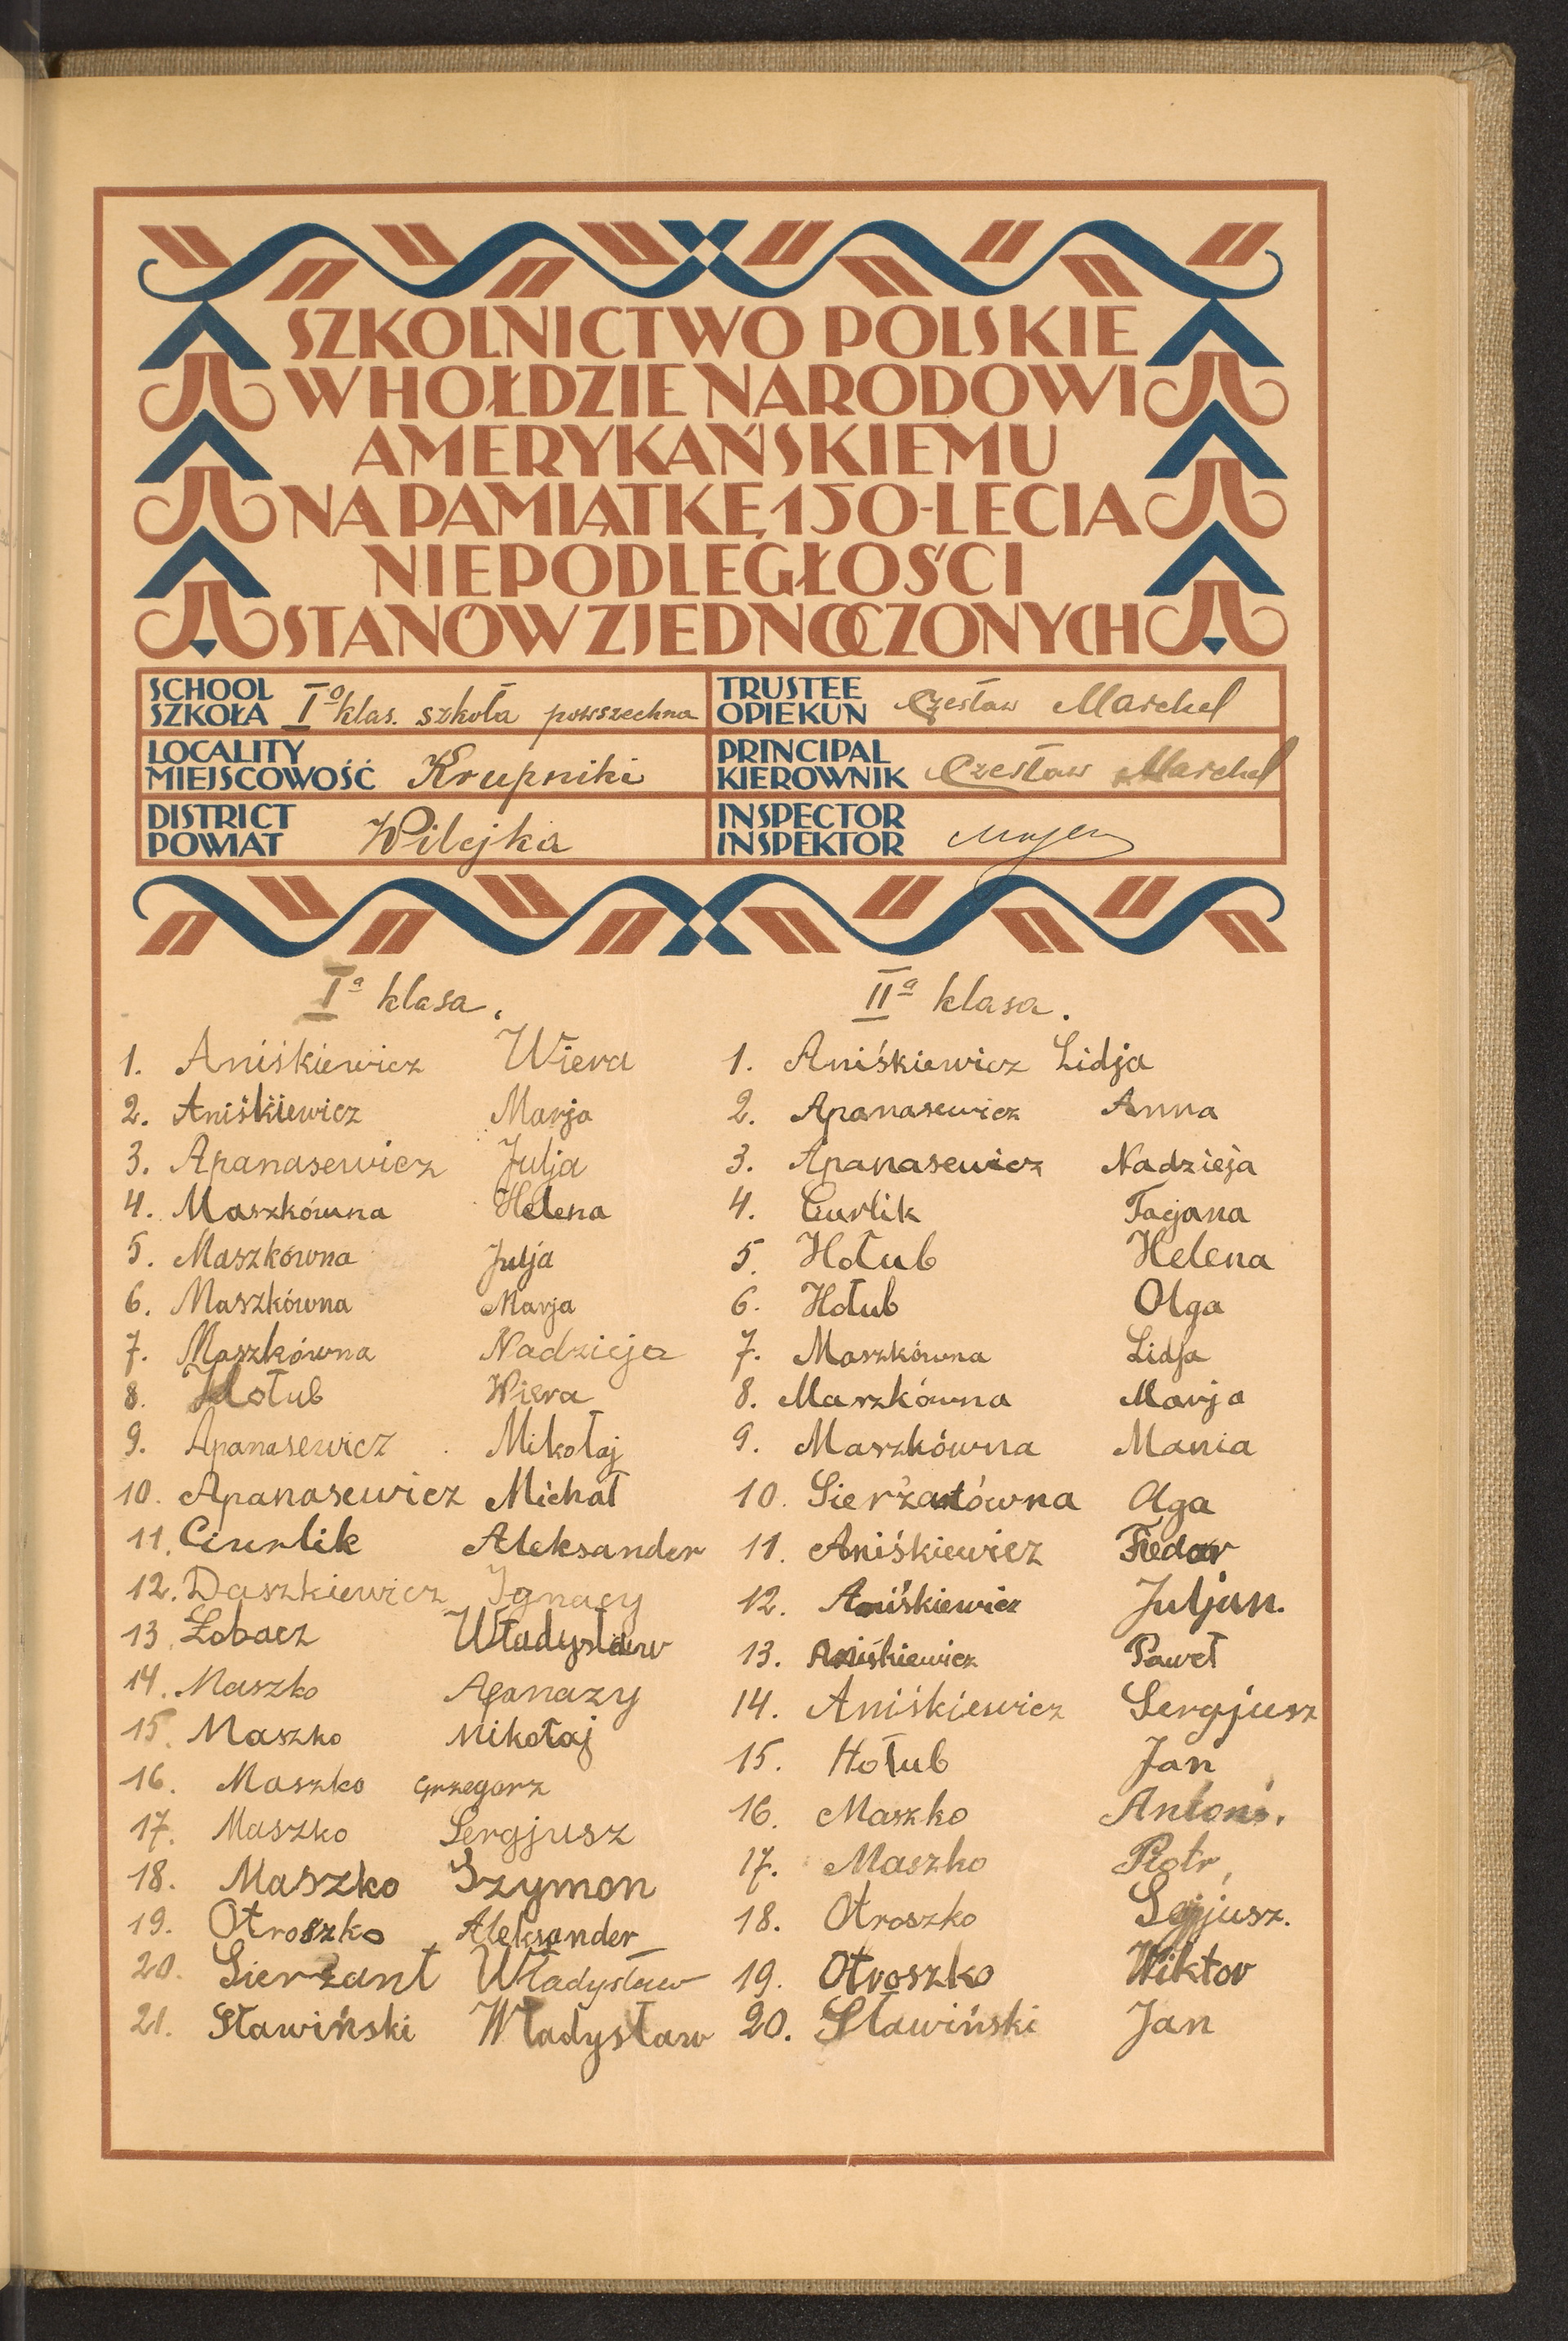 SZKOLNICTWO POLSKIE
W HOŁDZIE NARODOWI
AMERYKAŃSKIEMU
NA PAMIĄTKĘ 150-LECIA
NIEPODLEGŁOŚCI
STANÓW ZJEDNOCZONYCH
SCHOOL
SZKOŁA Iº klas. szkoła powszechna
TRUSTEE
OPIEKUN Czesław Marchel
LOCALITY
MIEJSCOWOŚĆ Krupniki
PRINCIPAL
KIEROWNIK Czesław Marchel
DISTRICT
POWIAT Wilejka
INSPECTOR
INSPEKTOR
Iª klasa.
1. Aniśkiewicz Wiera
2. Aniśkiewicz Marja
3. Apanasewicz Julja
4. Maszkówna Helena
5. Maszkówna Julja
6. Maszkówna Marja
7. Maszkówna Nadzieja
8. Hołub Wiera
9. Apanasewicz Mikołaj
10. Apanasewicz Michał
11. Ciurlik Aleksander
12. Daszkiewicz Ignacy
13. Łobacz Władysław
14. Maszko Afanazy
15. Maszko Mikołaj
16. Maszko Grzegorz
17. Maszko Sergjusz
18. Maszko Szymon
19. Otroszko Aleksander
20. Sierżant Władysław
21. Sławiński Władysław
IIª klasa.
1. Aniśkiewicz Lidja
2. Apanasewicz Anna
3. Apanasewicz Nadzieja
4. Ciurlik Tacjana
5. Hołub Helena
6. Hołub Olga
7. Maszkówna Lidja
8. Maszkówna Marja
9. Maszkówna Mania
10. Sierżantówna Olga
11. Aniśkiewicz Fiedor
12. Aniśkiewicz Juljan.
13. Aniśkiewicz Paweł
14. Aniśkiewicz Sergjusz
15. Hołub Jan
16. Maszko Antoni.
17. Maszko Piotr,
18. Otroszko
19. Otroszko Wiktor
20. Sławiński Jan